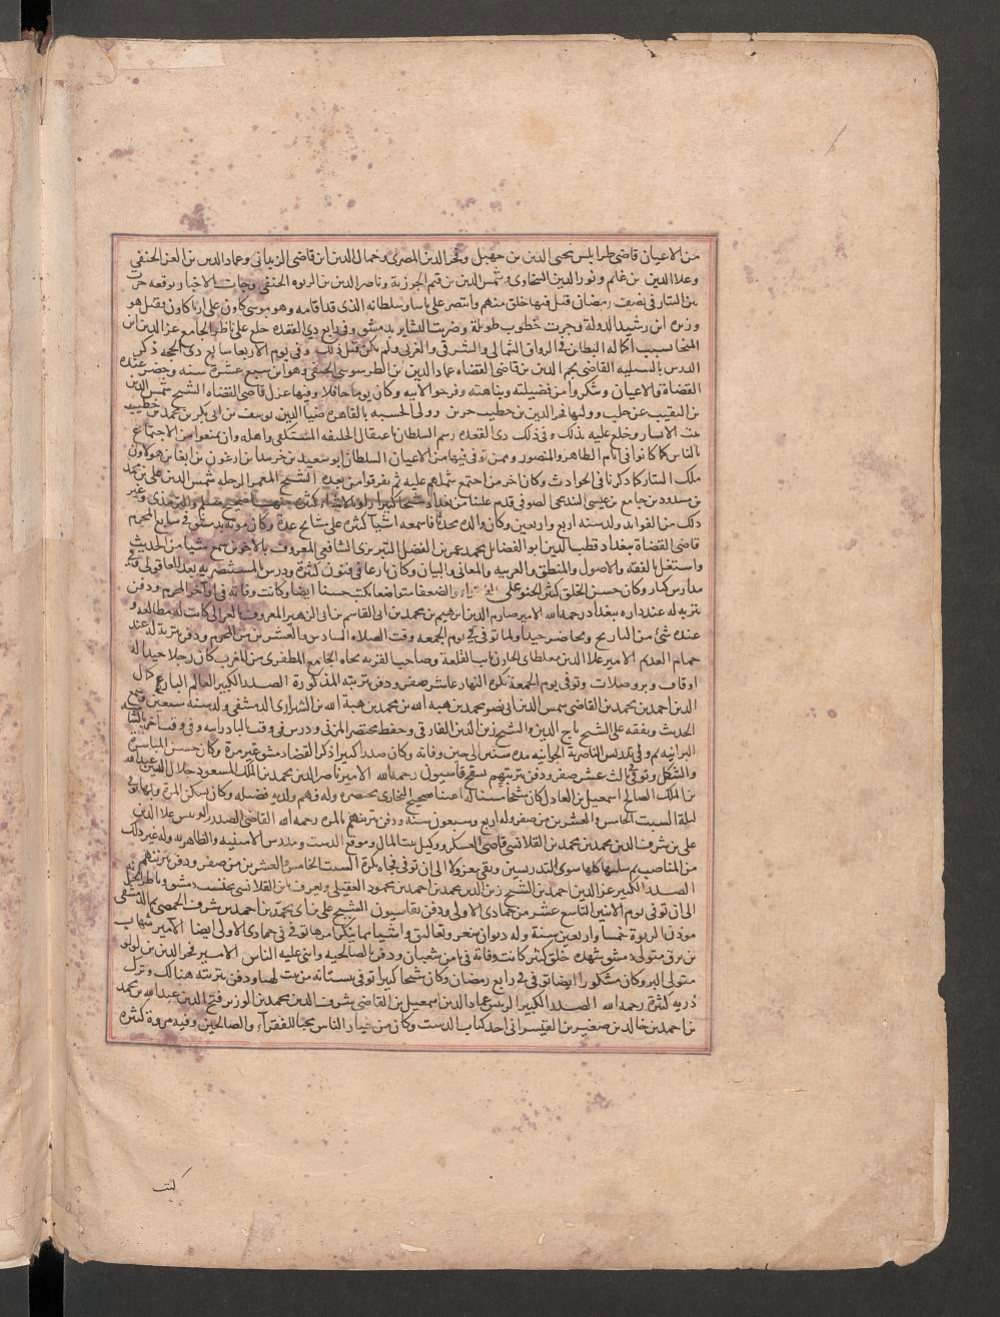 من الاعيان قاضي طرابلس محيى الدين بن جهبل وفخر الدين المصرى وجمال الدين ابن قاضى الزبدانى وعماد الدين بن العز الحنفى
وعلا الدين بن غانم ونور الدين السخاوى وشمس الدين بن قيم الجوزية وناصر الدين بن الربوه الحنفى وجات الاخبار بوقعه جرت
بين التتار فى نصف رمضان قتل فيها خلق منهم وانتصر على باسا وسلطانه الذى قد اقامه وهو موسى كاون على ارباكاون وقتل هو
وزيره ابن رشيد الدولة وجرت خطوب طويلة وضربت البشاير بدمشق وفى رابع ذى القعده خلع على ناظر الجامع عز الدين ابن
المنجا بسبب اكماله البطاين فى الرواق الشمالى والشرقى والغربى ولم يكن قبل ذلك وفى يوم الاربعا سابع ذى الحجه ذكر
الدرس بالشبليه القاضى نجم الدين بن قاضى القضاه عماد الدين بن الطرسوسى الحنفى وهو ابن سبع عشرة سنه وحضر عنده
القضاة والاعيان وشكروا من فضيلته ونباهته وفرحوا لابيه وكان يوما حافلا وفيها عزل قاضى القضاه الشيخ شمس الدين
بن النقيب عن حلب ووليها فخر الدين بن خطيب جبرين وولى الحسبه بالقاهره ضيا الدين يوسف بن ابى بكر بن محمد بن خطيب
بيت الابار وخلع عليه بذلك وفى ذلك ذى القعده رسم السلطان باعتقال الخليفه المستكفى واهله وان يمنعوا من الاجتماع
بالناس كما كانوا فى ايام الظاهر والمنصور وممن توفى فيها من الاعيان السلطان ابو سعيد بن خربندا بن ارغون بن ابغا بن هولاوو
ملك التتار كما ذكرنا فى الحوادث وكان اخر من اجتمع شملهم عليه ثم تفرقوا من بعده الشيخ المعمر الرحله شمس الدين على بن محمد
بن ممدود بن جامع بن عيسى البندنيجى الصوفى قدم علينا من بغداد شيخا كبيرا راويا لاشياء كثيره منها صحيح مسلم والترمذى وغير
ذلك من الفوايد ولد سنه اربع واربعين وكان والده محدثا فاسمعه اشيا كثيره على مشايخ عدة وكان موته بدمشق فى سابع المحرم
قاضى القضاة ببغداد قطب الدين ابو الفضايل محمد بن عمر بن الفضل التبريزى الشافعى المعروف بالاخوين سمع شيا من الحديث
واشتغل بالفقه والاصول والمنطق والعربيه والمعانى والبيان وكان بارعا فى فنون كثيرة ودرس بالمستنصريه بعد العاقولى وفى
مدارس كبار وكان حسن الخلق كثير الحنو على الفقراء والضعفا متواضعا يكتب حسنا ايضا وكانت وفاته فى اواخر المحرم ودفن
بتربه له عند داره ببغداد رحمه الله الامير صارم الدين ابرهيم بن محمد بن ابى القاسم بن ابى الزهر المعروف بالغزال كانت له مطالعه و
عنده شئ من التاريخ ويحاضر جيدا ولما توفى فى يوم الجمعه وقت الصلاه السادس والعشرين من المحرم ودفن بتربة له عند
حمام العديم الامير علا الدين مغلطاى الخازن نايب القلعة وصاحب التربه تجاه الجامع المظفرى من الغرب كان رجلا جيدا له
اوقاف وبر وصلات وتوفى يوم الجمعة بكرة النهار عاشر صفر ودفن بتربته المذكورة الصدر الكبير العالم البارع كمال
الدين احمد بن محمد بن القاضى شمس الدين ابى نصر محمد بن هبه الله بن محمد بن هبة الله بن الشيرازى الدمشقى ولد سنه سبعين وسمع
الحديث وتفقه على الشيخ تاج الدين والشيخ زين الدين الفارقى وحفظ مختصر المزنى ودرس فى وقت بالبادرائيه وفى وقت اخر بالشاميه
البرانيه ثم ولى تدريس الناصرية الجوانيه مده سنين الى حين وفاته وكان صدرا كبيرا ذكر لقضا دمشق غير مره وكان حسن المباشره
والشكل وتوفى ثالث عشر صفر ودفن بتربتهم بسفح قاسيون رحمه الله الامير ناصر الدين محمد بن الملك المسعود جلال الدين عبد الله
بن الملك الصالح اسمعيل بن العادل كان شيخا مسنا له اعتنا بصحيح البخارى يختصره وله فهم ولديه فضيله وكان يسكن المزة وبها توفى
ليلة السبت الخامس والعشرين من صفر وله اربع وسبعون سنه ودفن بتربتهم بالمزه رحمه الله القاضى الصدر الرئيس علا الدين
على بن شرف الدين محمد بن محمد بن القلانسى قاضى العسكر ووكيل بيت المال وموقع الدست ومدرس الامينيه والظاهريه وله غير ذلك
من المناصب ثم سلبها كلها سوى التدريسين وبقى معزولا الى ان توفى فجاه بكرة السبت الخامس والعشرين من صفر ودفن بتربتهم
الصدر الكبير عز الدين احمد بن الشيخ زين الدين محمد بن احمد بن محمود العقيلى ويعرف بابن القلانسى محتسب دمشق وناظر
الى ان توفى يوم الاثنين التاسع عشر من جمادى الاولى ودفن بقاسيون الشيخ على بن ابى بكر بن احمد بن شرف الحمصى ثم الدمشقى
موذن الربوة خمسا واربعين سنة وله ديوان شعر وتعاليق واشيا مما ينكر امرها توفى فى جمادى الاولى ايضا الامير شهاب
بن برق متولى دمشق شهد جنازته خلق كثير كانت وفاته فى ثامن شعبان ودفن بالصالحيه واثنى عليه الناس الامير فخر الدين بن لولو
متولى البر وكان مشكورا ايضا توفى فى رابع رمضان وكان شيخا كبيرا توفى ببستانه من بيت لهيا ودفن بتربته هنالك وترك
ذريه كثيره رحمه الله الصدر الكبير الرئيس عماد الدين اسمعيل بن القاضى شرف الدين محمد بن الوزير فتح الدين عبد الله بن محمد
بن احمد بن خالد بن صغير بن القيسرانى احد كتاب الدست وكان من خيار الناس محبا للفقرآء والصالحين وفيه مروة كثيره